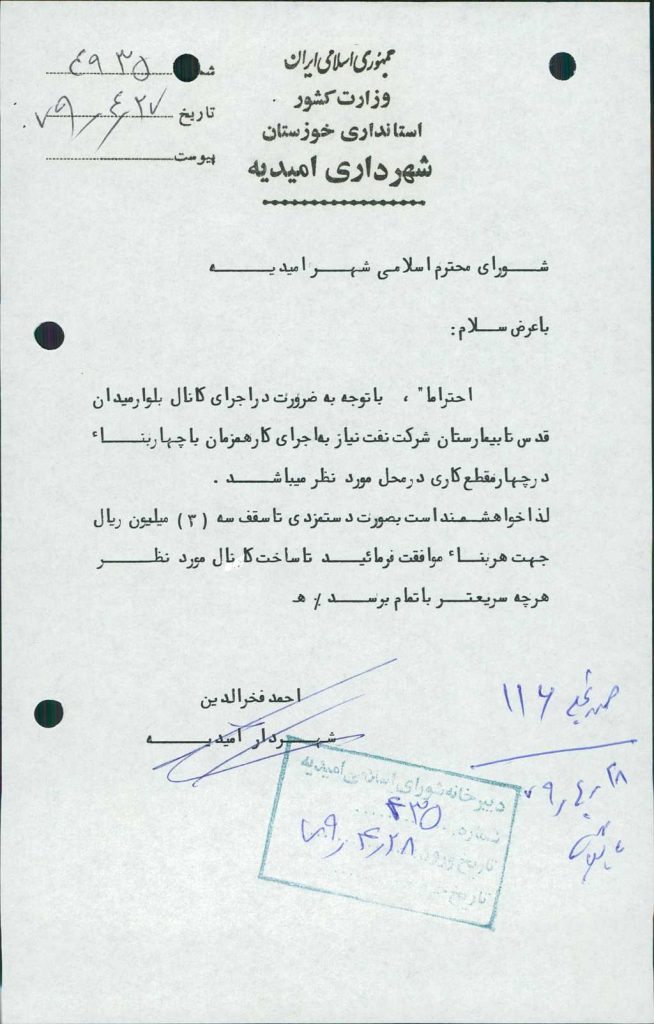 جمهوری اسلامی ایران
وزارت کشور
استانداری خوزستان
شهرداری امیدیه
شماره ۴۹۳۵
تاریخ ۷۹/۴/۲۷
پیوست
شورای محترم اسلامی شهر امیدیه
با عرض سلام:
احتراما" ، با توجه به ضرورت در اجرای کانال بلوار میدان
قدس تا بیمارستان شرکت نفت نیاز به اجرای کار همزمان با چهار بناء
در چهار مقطع کاری در محل مورد نظر میباشد .
لذا خواهشمند است بصورت دستمزدی تا سقف سه (۳) میلیون ریال
جهت هر بناء موافقت فرمائید تا ساخت کانال مورد نظر
هرچه سریعتر باتمام برسد ٪ ه
احمد فخرالدین
شهردار امیدیه
۱۱۶
۷۹/۴/۲۸
دبیرخانه شورای اسلامی امیدیه
شماره ۴۳۵
تاریخ ورود ۷۹/۴/۲۸
تاریخ